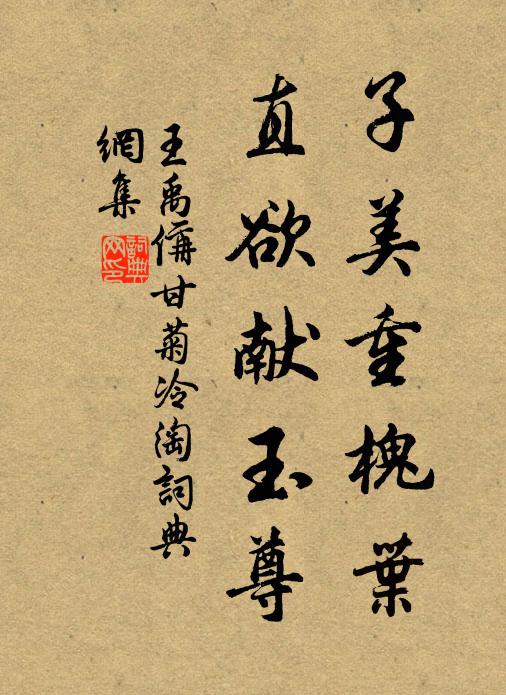 子美重槐葉
直欲献玉尊
王禹偁甘菊冷淘詞典
網集
詞典网印